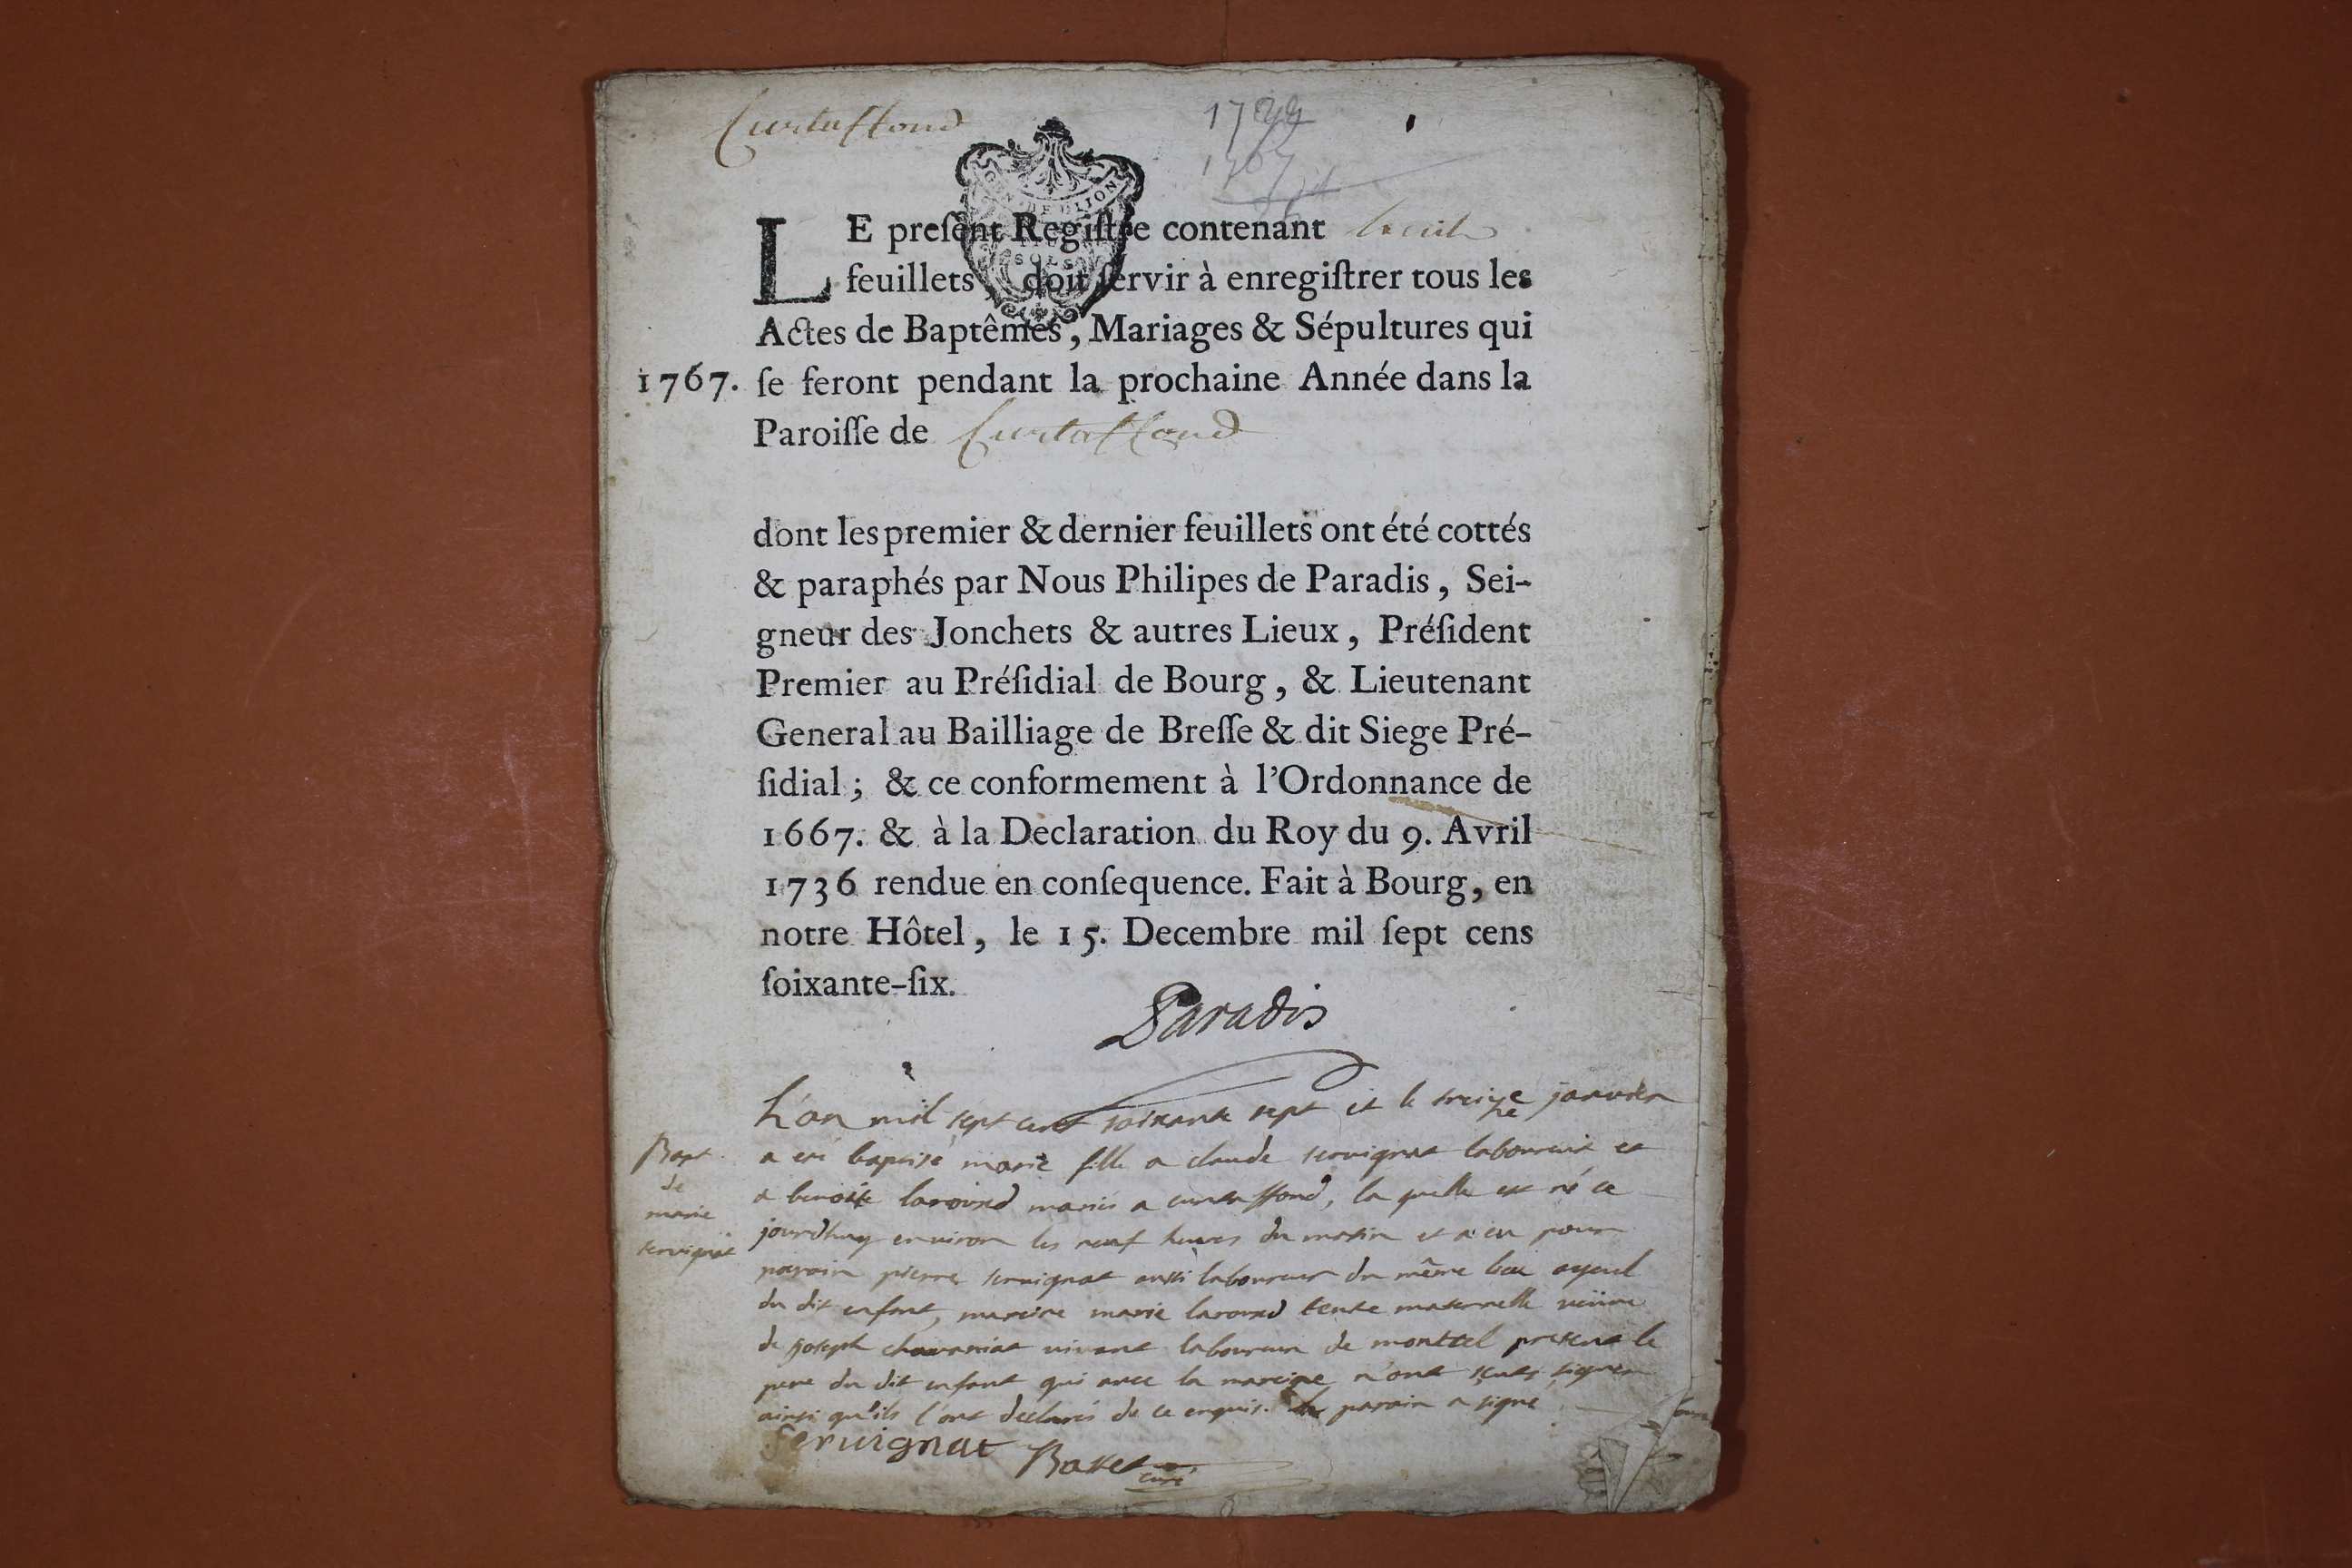 Curtaffond
17
LE preſent Regiſtre contenant huit
feuillets, doit ſervir à enregiſtrer tous les
Actes de Baptêmes, Mariages & Sépultures qui
1767. ſe feront pendant la prochaine Année dans la
Paroiſſe de Curtaffond
dont les premier & dernier feuillets ont été cottés
& paraphés par Nous Philipes de Paradis, Sei-
gneur des Jonchets & autres Lieux, Préſident
Premier au Préſidial de Bourg, & Lieutenant
General au Bailliage de Breſſe & dit Siege Pré-
ſidial; & ce conformement à l'Ordonnance de
1667. & à la Declaration du Roy du 9. Avril
1736 rendue en conſequence. Fait à Bourg, en
notre Hôtel, le 15. Decembre mil ſept cens
ſoixante-ſix.
Paradis
L'an mil sept cent soixante sept et le treize janvier
Bapt.
de
marie
servignat
a été baptisé marie fille a claude servignat laboureur et
a benoite laround mariés a curtaffond, la quelle est né ce
jourdhuy environ les neuf heures du matin et a eu pour
parain pierre servignat aussi laboureur du même lieu ayeul
du dit enfant, mareine marie laround tente maternelle veüve
de joseph chavanniat vivant laboureur de monttel present le
pere du dit enfant qui avec la mareine n'ont sçuts signer
ainsi qu'ils l'ont declarés de ce enquis. le parain a signé
servignat Basset curé